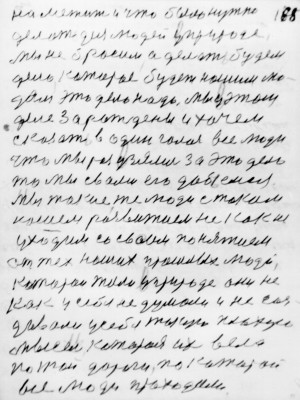 168
на метит и что было нужно
делать для людей в природе,
мы не бросим а делать будем
дело которое будет нашим лю-
дям это дело надо, мы в этом
деле зарождены и хочем
сказать в один голос все люди
что мы раз взяли за это дело
то мы своли его добемся
мы такие же люди с таким
нашем развитием не как и
уходим со своим понятием
от тех наших прошлых людей,
которои жили в природе они не
как у себе не думали и не соз-
давали у себе такую плахую
мысель которая их вела
по той дороги, по которой
все люди проходили